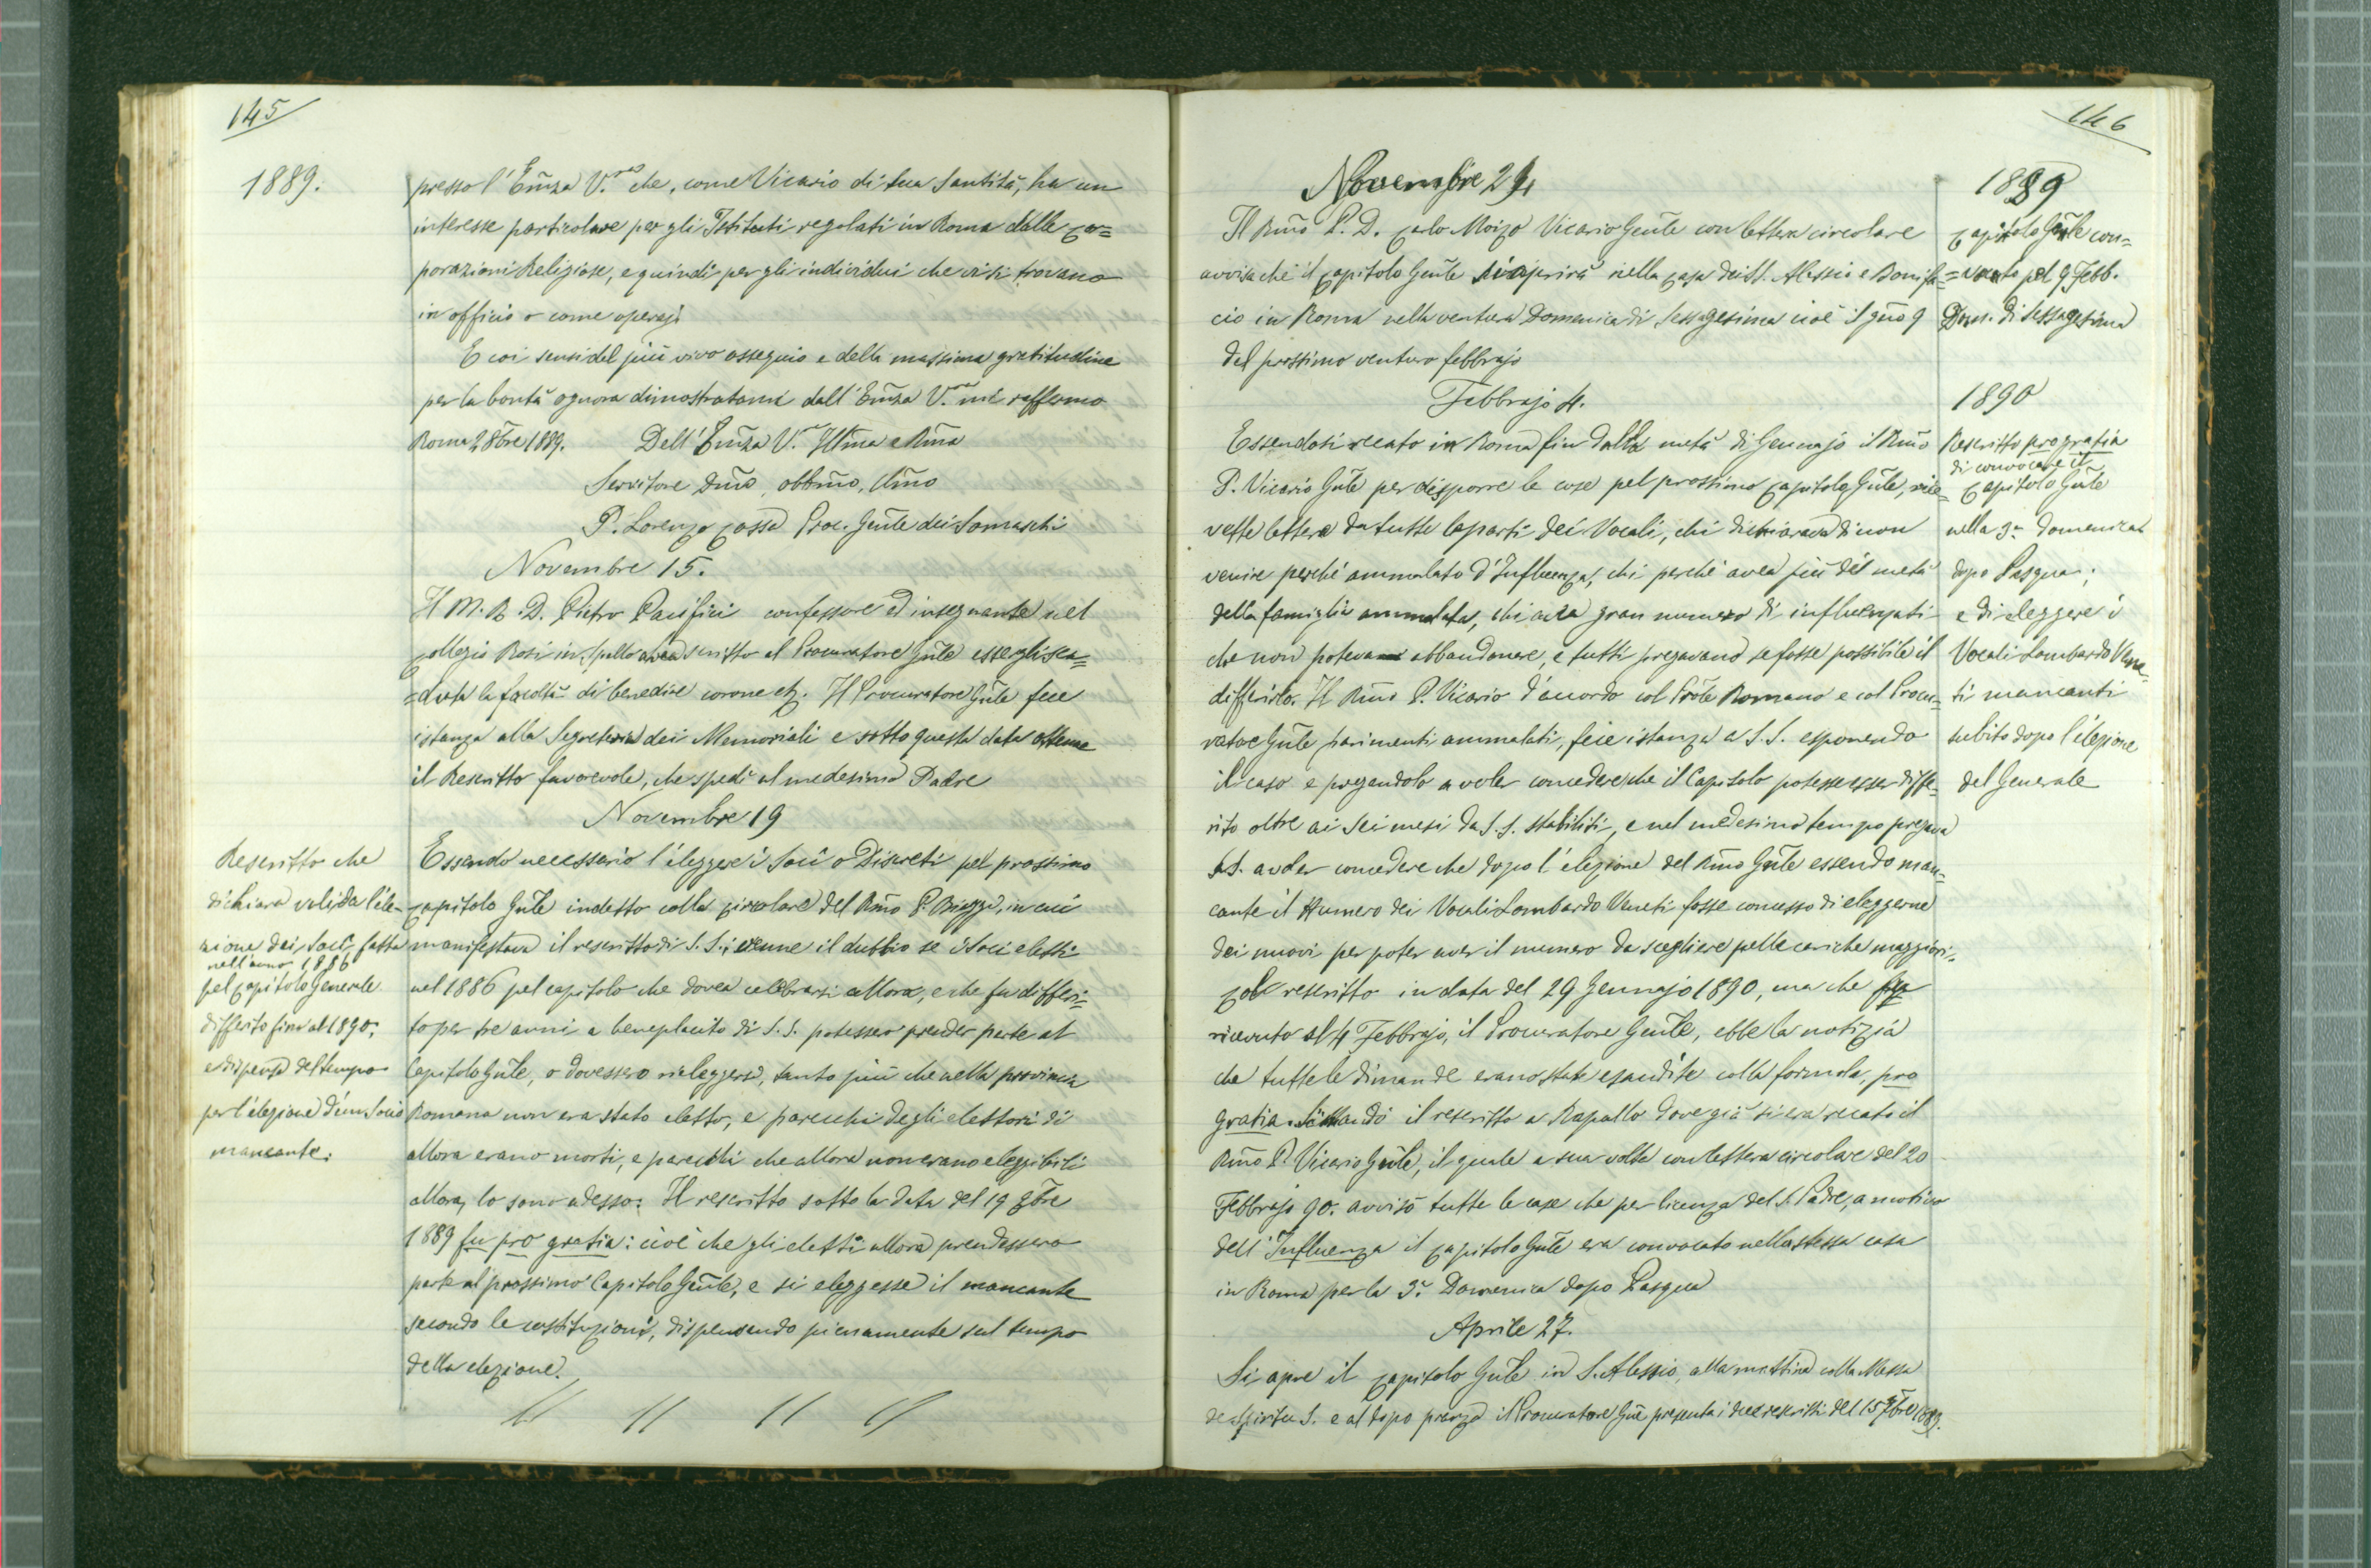 145
1889.
presso l'Em̃za V.ra che, come Vicario di Sua Santità, ha un
interesse particolare per gli Istituti regolati in Roma dalle Cor=
porazioni Religiose, e quindi per gli individui che vi si trovano
in officio o come operaj.
E coi sensi del più vivo ossequio e della massima gratitudine
per la bontà ognora dimostratami dall'Em̃za V.ra mi raffermo
Roma 2 8bre 1889. Dell'Em̃za V.ra Ill̃ma e Rm̃a
Servitore Dm̃o, obbm̃o,
P. Lorenzo Cossa Proc. Gen̄le dei Somaschi
Novembre 15.
Il M. R. D. Pietro Pacifici confessore ed insegnante nel
Collegio Rosi in Spello avea scritto al Procuratore Gen̄le essergli sca=
=duta la facoltà di benedire corone etz. Il Procuratore Gn̄le fece
istanza alla Segreteria dei Memoriali e sotto questa data ottenne
il Rescritto favorevole, che spedì al medesimo Padre
Novembre 19
Rescritto che
dichiara valida l'ele-
zione dei Socj fatta
nell'anno 1886
pel Capitolo Generale
differito fino al 1890;
e dispensa del tempo
per l'elezione d'un Socio
mancante.
Essendo necessario l'eleggere i Socii o Discreti pel prossimo
Capitolo Gn̄le indetto colla circolare del Rm̃o P. Biaggi, in cui
manifestava il rescritto di S. S.; venne il dubbio se i Soci eletti
nel 1886 pel capitolo che dovea celebrarsi allora, e che fu differi=
to per tre anni a beneplacito di S. S. potessero prender parte al
Capitolo Gn̄le, o dovessero rieleggersi, tanto più che nella provincia
Romana non era stato eletto, e parecchi degli elettori di
allora erano morti, e parecchi che allora non erano eleggibili
allora, lo sono adesso. Il rescritto sotto la data del 19 9bre
1889 fu pro gratia: cioè che gli eletti allora prendessero
parte al prossimo Capitolo Gen̄le, e si eleggesse il mancante
secondo le costituzioni, dispensando pienamente sul tempo
della elezione.
146
Novembre 24
1889
Capitolo Gn̄le con=
=vocato pel 9 Febb.
Dom. di Sessagesima
Il Rm̃o P. D. Carlo Moizo Vicario Gen̄le con lettera circolare
avvisa che il Capitolo Gen̄le si aprirà nella Casa dei SS. Alessio e Bonifa=
cio in Roma nella ventura Domenica di Sessagesima cioè il gn̄o 9
del prossimo venturo febbrajo
Febbrajo 4.
1890
Rescritto pro gratia
di convocare il
Capitolo Gn̄le
nella 3a Domenica
dopo Pasqua;
e di eleggere i
Vocali Lombardo Vene-
ti mancanti
subito dopo l'elezione
del Generale
Essendosi recato in Roma fin dalla metà di Gennajo il Rm̃o
P. Vicario Gn̄le per disporre le cose pel prossimo Capitolo Gn̄le, rice=
vette lettere da tutte le parti dei Vocali, chi dichiarava di non
venire perché ammalato d'Influenza, chi perché avea più di metà
della famiglia ammalata, chi avea gran numero di influenzati
che non poteva abbandonare, e tutti pregavano se fosse possibile il
differirlo. Il Rm̃o P. Vicario d'accordo col Prõle Romano e col Procu=
ratore Gn̄le parimenti ammalati, fece istanza a S. S. esponendo
il caso e pregandolo a voler concedere che il Capitolo potesse esser diffe=
rito oltre ai sei mesi da S. S. stabiliti, e nel medesimo tempo pregava
S. S. a voler concedere che dopo l'elezione del Rm̃o Gn̄le essendo man=
cante il numero dei Vocali Lombardo Veneti fosse concesso di eleggerne
dei nuovi per poter aver il numero da scegliere pelle cariche maggiori.
Col rescritto in data del 29 Gennajo 1890, ma che fu
ricevuto al 4 Febbrajo, il Procuratore Gen̄le, ebbe la notizia
che tutte le dimande erano state esaudite colla formola, pro
gratia. Si mandò il rescritto a Rapallo dove già si era recato il
Rm̃o P. Vicario Gn̄le, il quale a sua volta con lettera circolare del 20
Febbrajo 90. avvisò tutte le case che per licenza del S. Padre, a motivo
dell'Influenza il Capitolo Gn̄le era convocato nella stessa casa
in Roma per la 3a Domenica dopo Pasqua
Aprile 27.
Si apre il Capitolo Gn̄le in S. Alessio, alla mattina colla Messa
de Spiritu S. e al dopo pranzo il Procuratore Gn̄le presenta i due rescritti del 15 7bre 1889.